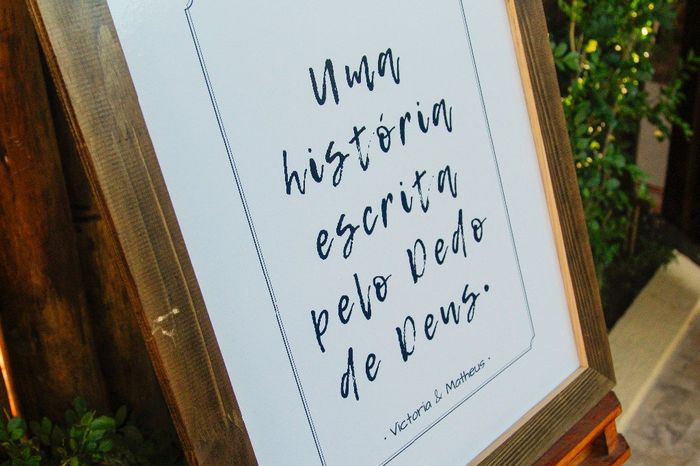 Uma
história
escrita
pelo Dedo
de Deus.
· Victoria & Matheus ·